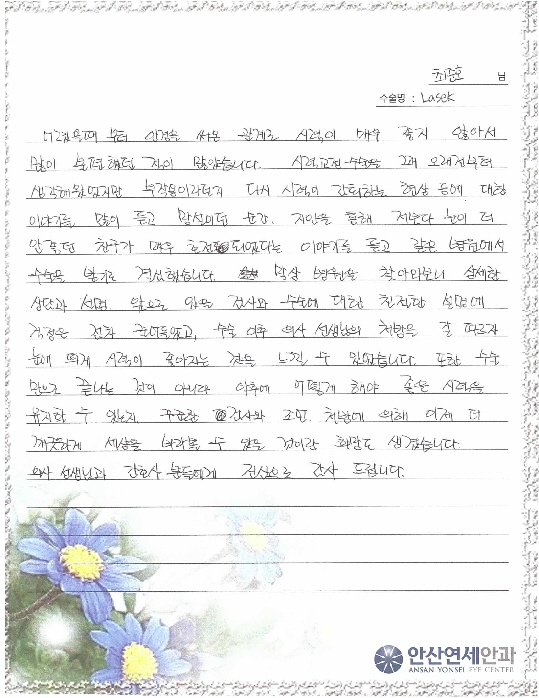 최준호 님
수술명 : Lasek
어렸을때 부터 안경을 써온 관계로 시력이 매우 좋지 않아서
많이 불편했던 점이 많았습니다. 시력교정 수술을 꽤 오래전부터
생각해왔었지만 부작용이라던지 다시 시력이 감퇴하는 현상 등에 대한
이야기를 많이 듣고 망설이던 순간, 지인을 통해 저보다 눈이 더
안좋던 친구가 매우 호전되었다는 이야기를 듣고 같은 병원에서
수술을 받기로 결심했습니다. 막상 병원을 찾아와보니 섬세한
상담과 설명, 앞으로 있을 검사와 수술에 대한 친절한 설명에
걱정은 점차 줄어들었고, 수술 이후 의사 선생님의 처방을 잘 따르자
눈에 띄게 시력이 좋아지는 것을 느낄 수 있었습니다. 또한 수술
만으로 끝나는 것이 아니라 이후에 어떻게 해야 좋은 시력을
유지할 수 있는지 꾸준한 검사와 조언, 처방에 의해 이제 더
깨끗하게 세상을 바라볼 수 있을 것이란 희망도 생겼습니다.
의사 선생님과 간호사 분들에게 진심으로 감사 드립니다.
안산연세안과
ANSAN YONSEI EYE CENTER